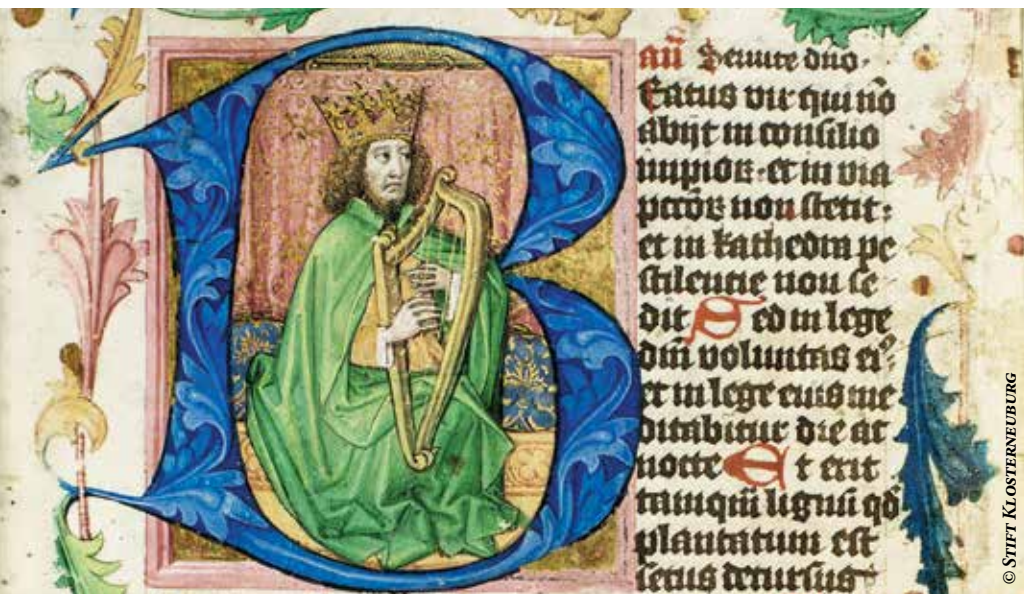 B
añ Seruite dño.
Eatus vir qui nõ
abijt in consilio
impioꝝ. et in via
pccõꝝ non stetit:
et in kathedra pe
stilentie non se
dit Sed in lege
dm̃ voluntas ei⁹.
et in lege eius me
ditabitur die ac
nocte Et erit
tamqm̃ lignũ qd̃
plantatum est
secus decursus
© STIFT KLOSTERNEUBURG